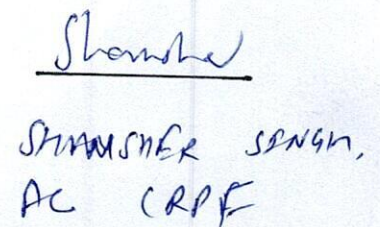 Shamsher
SHAMSHER SINGH,
AC CRPF